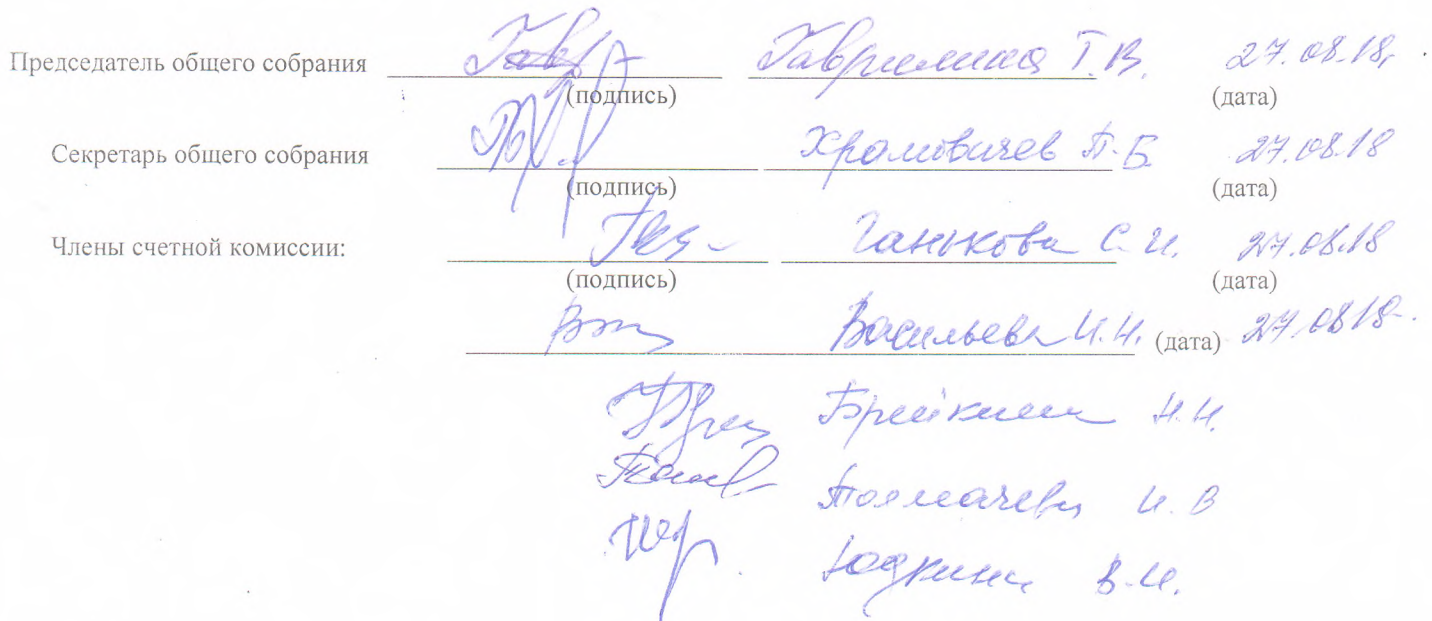 Председатель общего собрания Гаврилина Т.В. 27.08.18г
(подпись) (дата)
Секретарь общего собрания Храмовичев П.Б. 27.08.18
(подпись) (дата)
Члены счетной комиссии: Ганькова С.И. 27.08.18
(подпись) (дата)
Васильева И.И. (дата) 27.08.18
Н.И.
Толмачева И.В
Юдкина В.И.